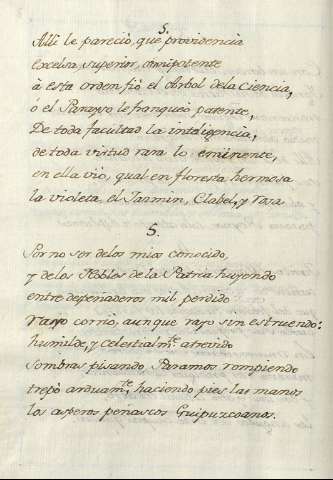 5.
Alli le pareciò, que providencia
excelsa, superior, omnipotente
à esta orden fiò el Arbol de la Ciencia,
ó el Parayso le franqueò patente,
De toda facultad la inteligencia,
de toda virtud rara lo eminente,
en ella vio, qual en floresta hermosa
la violeta, el Jasmin, Clabel, y rosa
5.
Por no ser de los mios conocido,
y de los Nobles de la Patria huyendo
entre despeñaderos mil perdido
rayo corrio, aunque rayo sin estruendo:
humilde, y celestialm.te atreido
Sombras pisando Paramos rompiendo
trepò arduam.te, haciendo pies las manos
los asperos peñascos Guipuzcoanos.